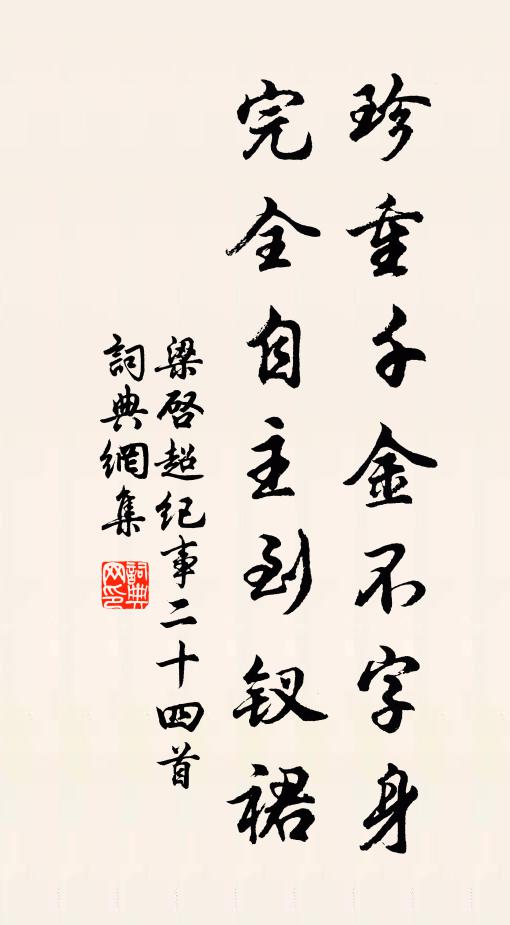 珍重千金不字身
完全自主到釵裙
梁啓超纪事二十四首
詞典網集
詞典网印